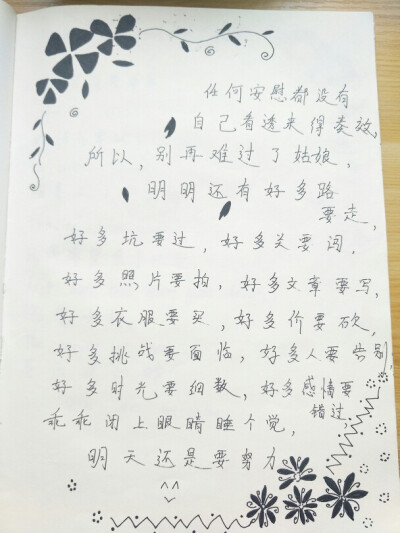 任何安慰都没有
自己看透来得奏效,
所以，别再难过了姑娘，
明明还有好多路
要走,
好多坑要过，好多关要闯，
好多照片要拍，好多文章要写,
好多衣服要买，好多价要砍,
好多挑战要面临，好多人要告别,
好多时光要细数，好多感情要
错过,
乖乖闭上眼睛睡个觉，
明天还是要努力
^^